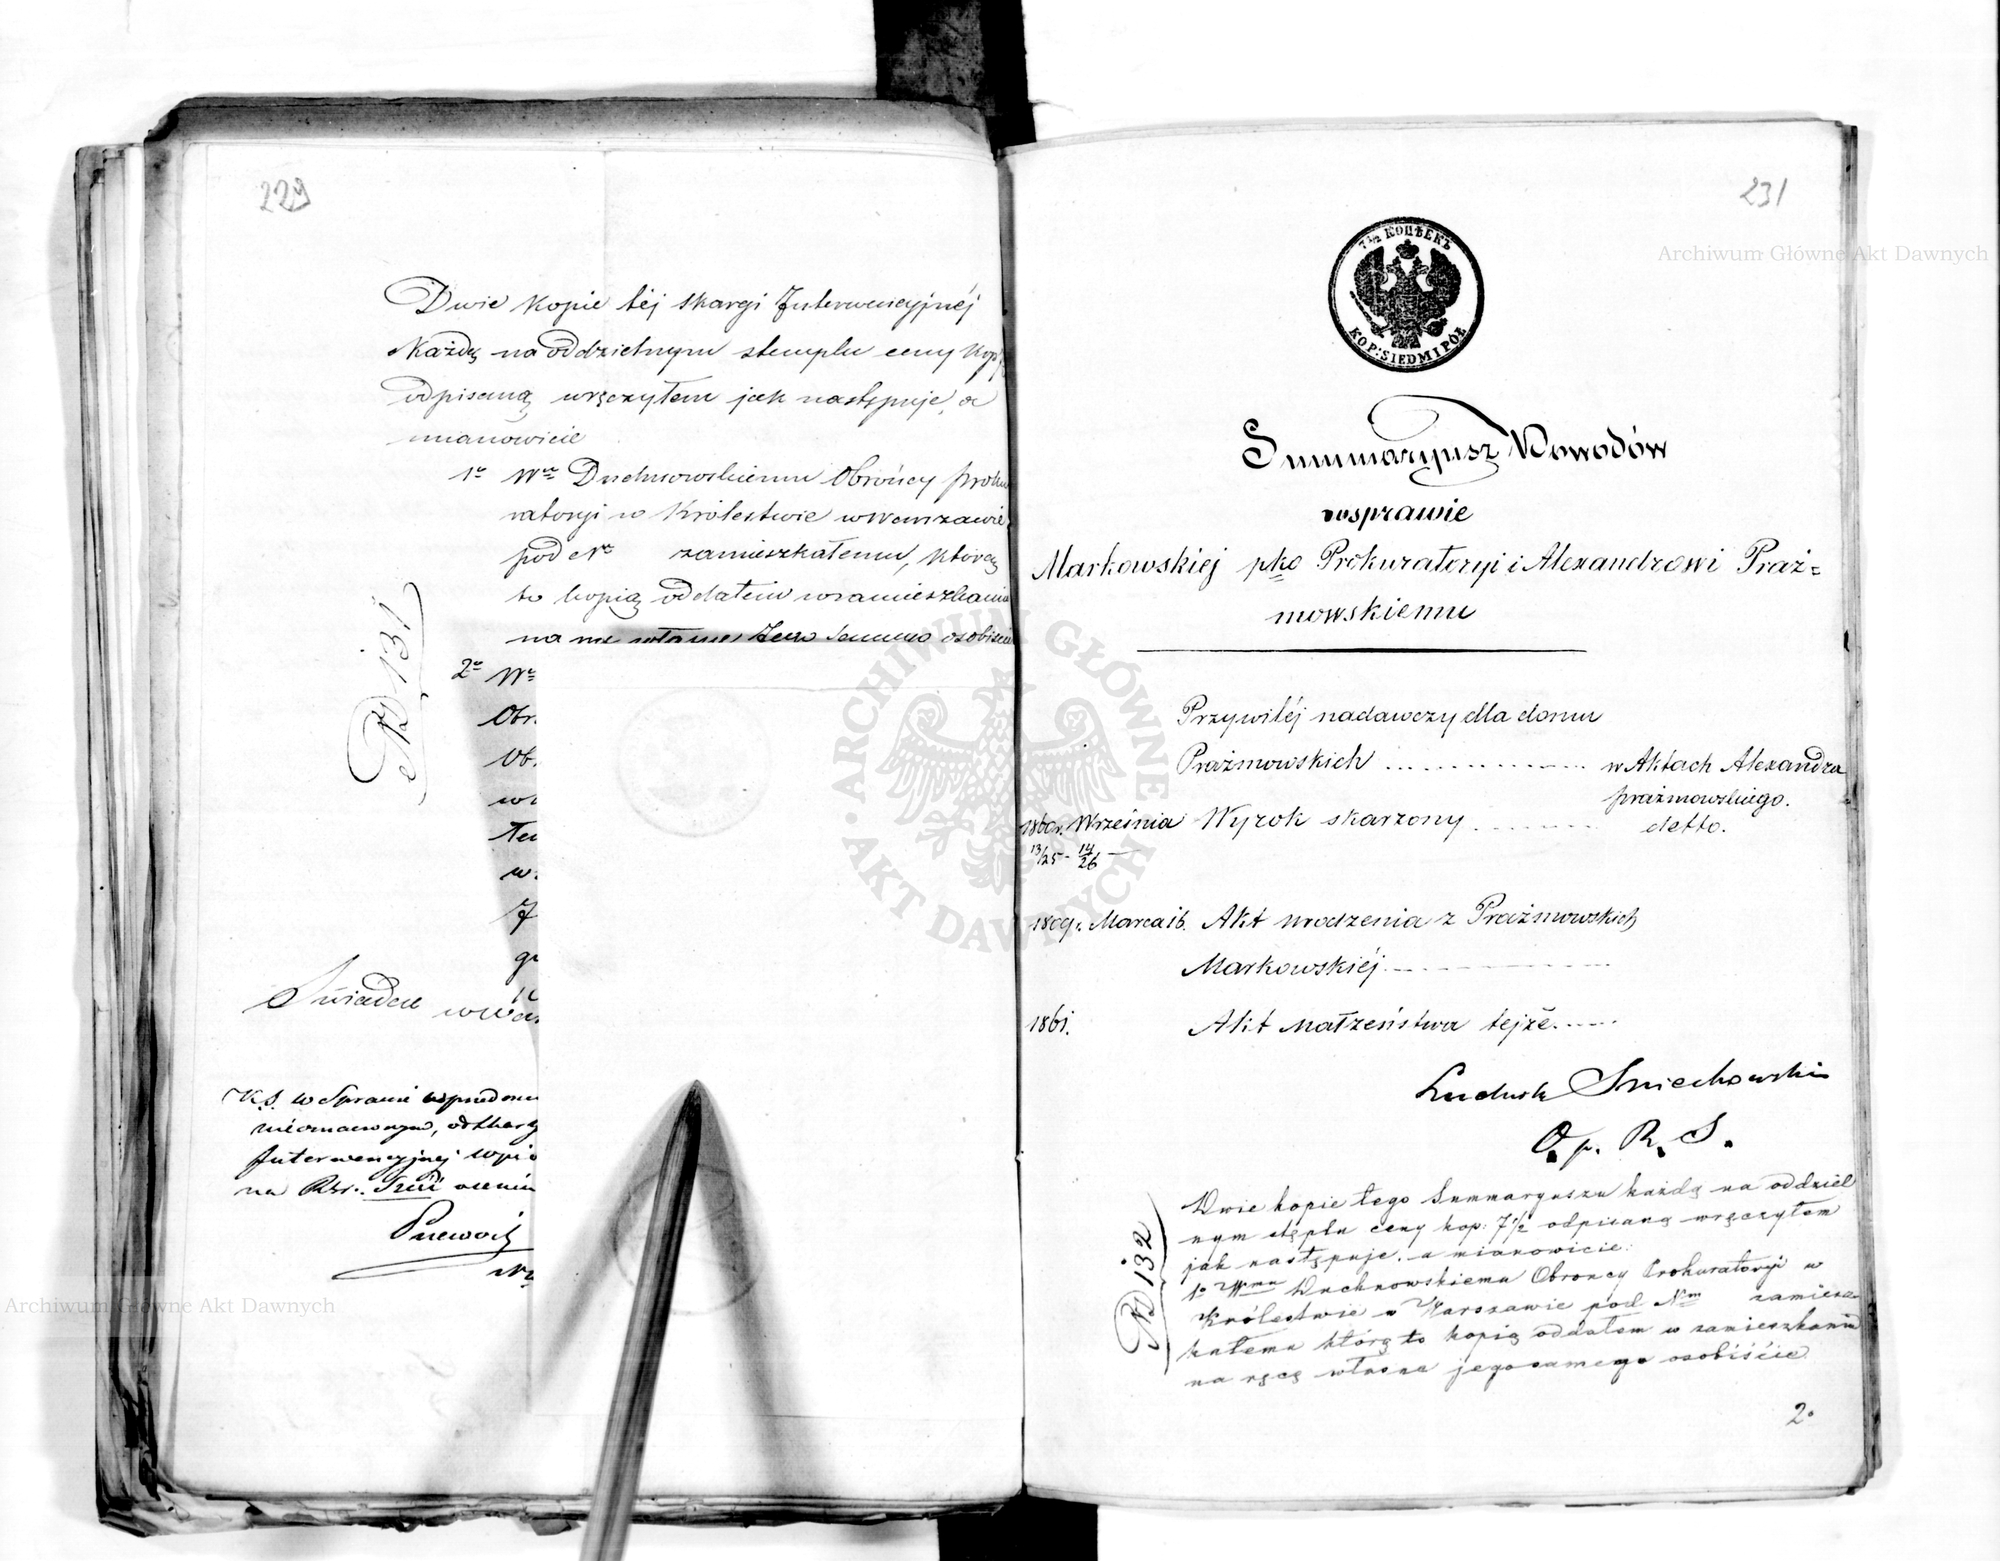 229
Dwie kopie téj skargi Interwencyjnéj
każdą na oddzielnym stemplu ceny kop
odpisaną wręczyłem jak następuje, a
mianowicie
1e Wmu Duchnowskiemu Obrońcy Proku
ratoryi w Królestwie w Warszawie
pod Nr zamieszkałemu, którą
to kopią oddałem w zamieszkaniu
na osobiście
2e W
Obr.
Ob.
w.
Świadczę w War
N 131
K.S. w Sprawie
Interwencyjnej
na Rsr.
231
7½ КОПѢЕКЪ
KOP: SIEDMIPÓŁ
Summaryusz Dowodów
wsprawie
Markowskiej pko Prokuratoryi i Alexandrowi Praż=
mowskiemu
Przywiléj nadawczy dla domu
Prażmowskich .......... w Aktach Alexandra
Prażmowskiego.
1860 r. Września Wyrok skarżony ........ detto.
13/25 - 14/26 —
1809 r. Marca 16. Akt urodzenia z Prażmowskich
Markowskiéj
1861. Akt Małżeństwa tejże.
Ludwik Śniechowski
O. p. R. S.
N 132
Dwie kopie tego Summaryuszu każdą na oddziel
nym stęplu ceny kop: 7½ odpisaną wręczyłem
jak następuje, a mianowicie:
1o Wmu Duchnowskiemu Obrońcy Prokuratoryi w
Królestwie w Warszawie pod Nm zamiesz
kałemu którą to kopią oddałem w zamieszkaniu
na ręcę własne jego samego osobiście
2o
ARCHIWUM GŁÓWNE AKT DAWNYCH
Archiwum Główne Akt Dawnych
Archiwum Główne Akt Dawnych